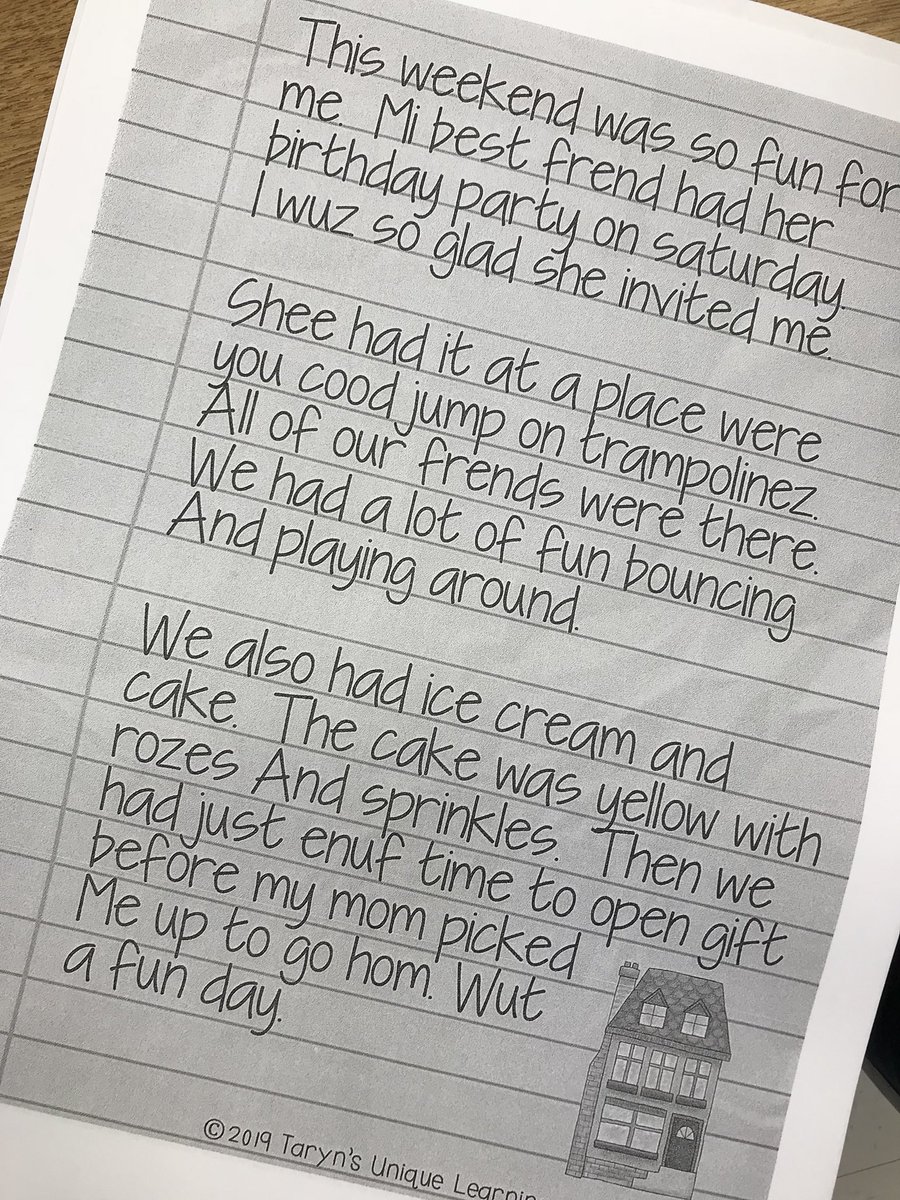 This weekend was so fun for
me. Mi best frend had her
birthday party on saturday.
I wuz so glad she invited me.
Shee had it at a place were
you cood jump on trampolinez.
All of our frends were there.
We had a lot of fun bouncing
And playing around.
We also had ice cream and
cake. The cake was yellow with
rozes And sprinkles. Then we
had just enuf time to open gift
before my mom picked
Me up to go hom. Wut
a fun day.
©2019 Taryn's Unique